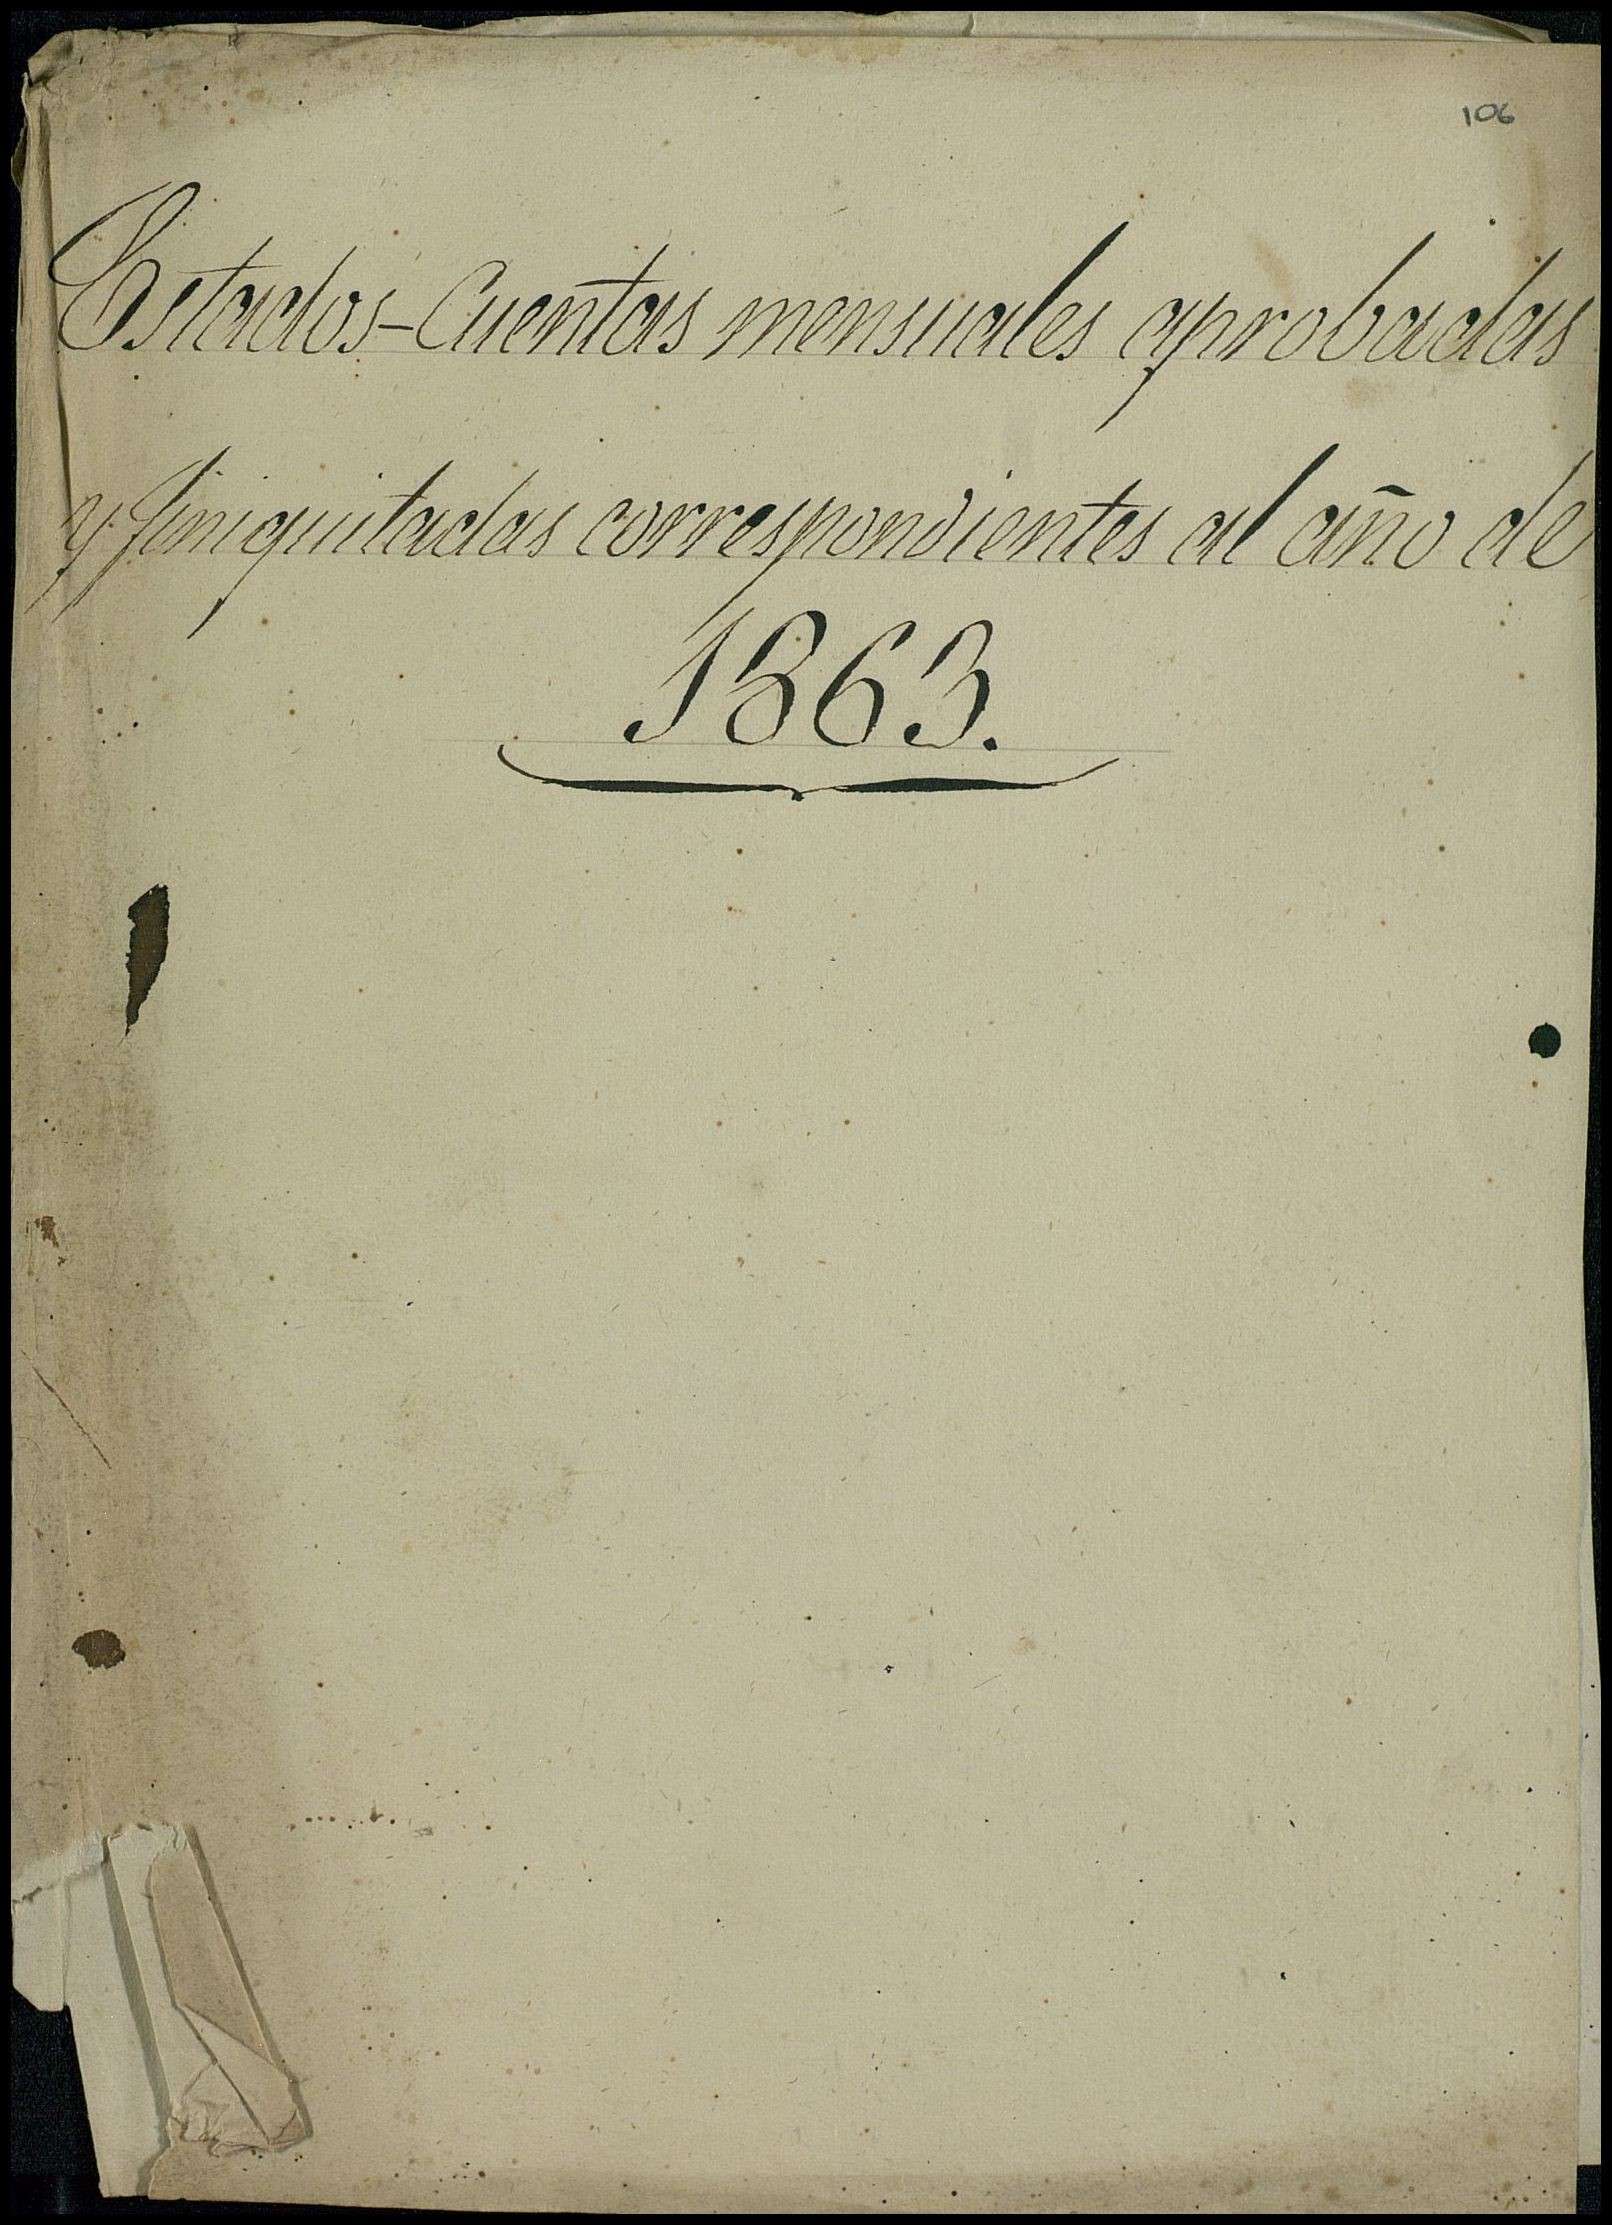 106
Estados-Cuentas mensuales aprobadas
y finiquitadas correspondientes al año de
1863.